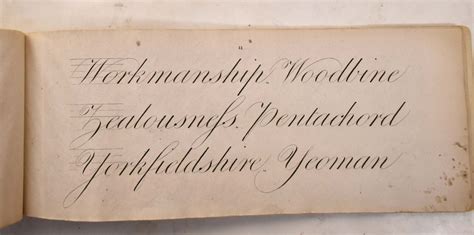 Workmanship. Woodbine
Zealousneſs. Pentachord
Yorkfieldshire. Yeoman